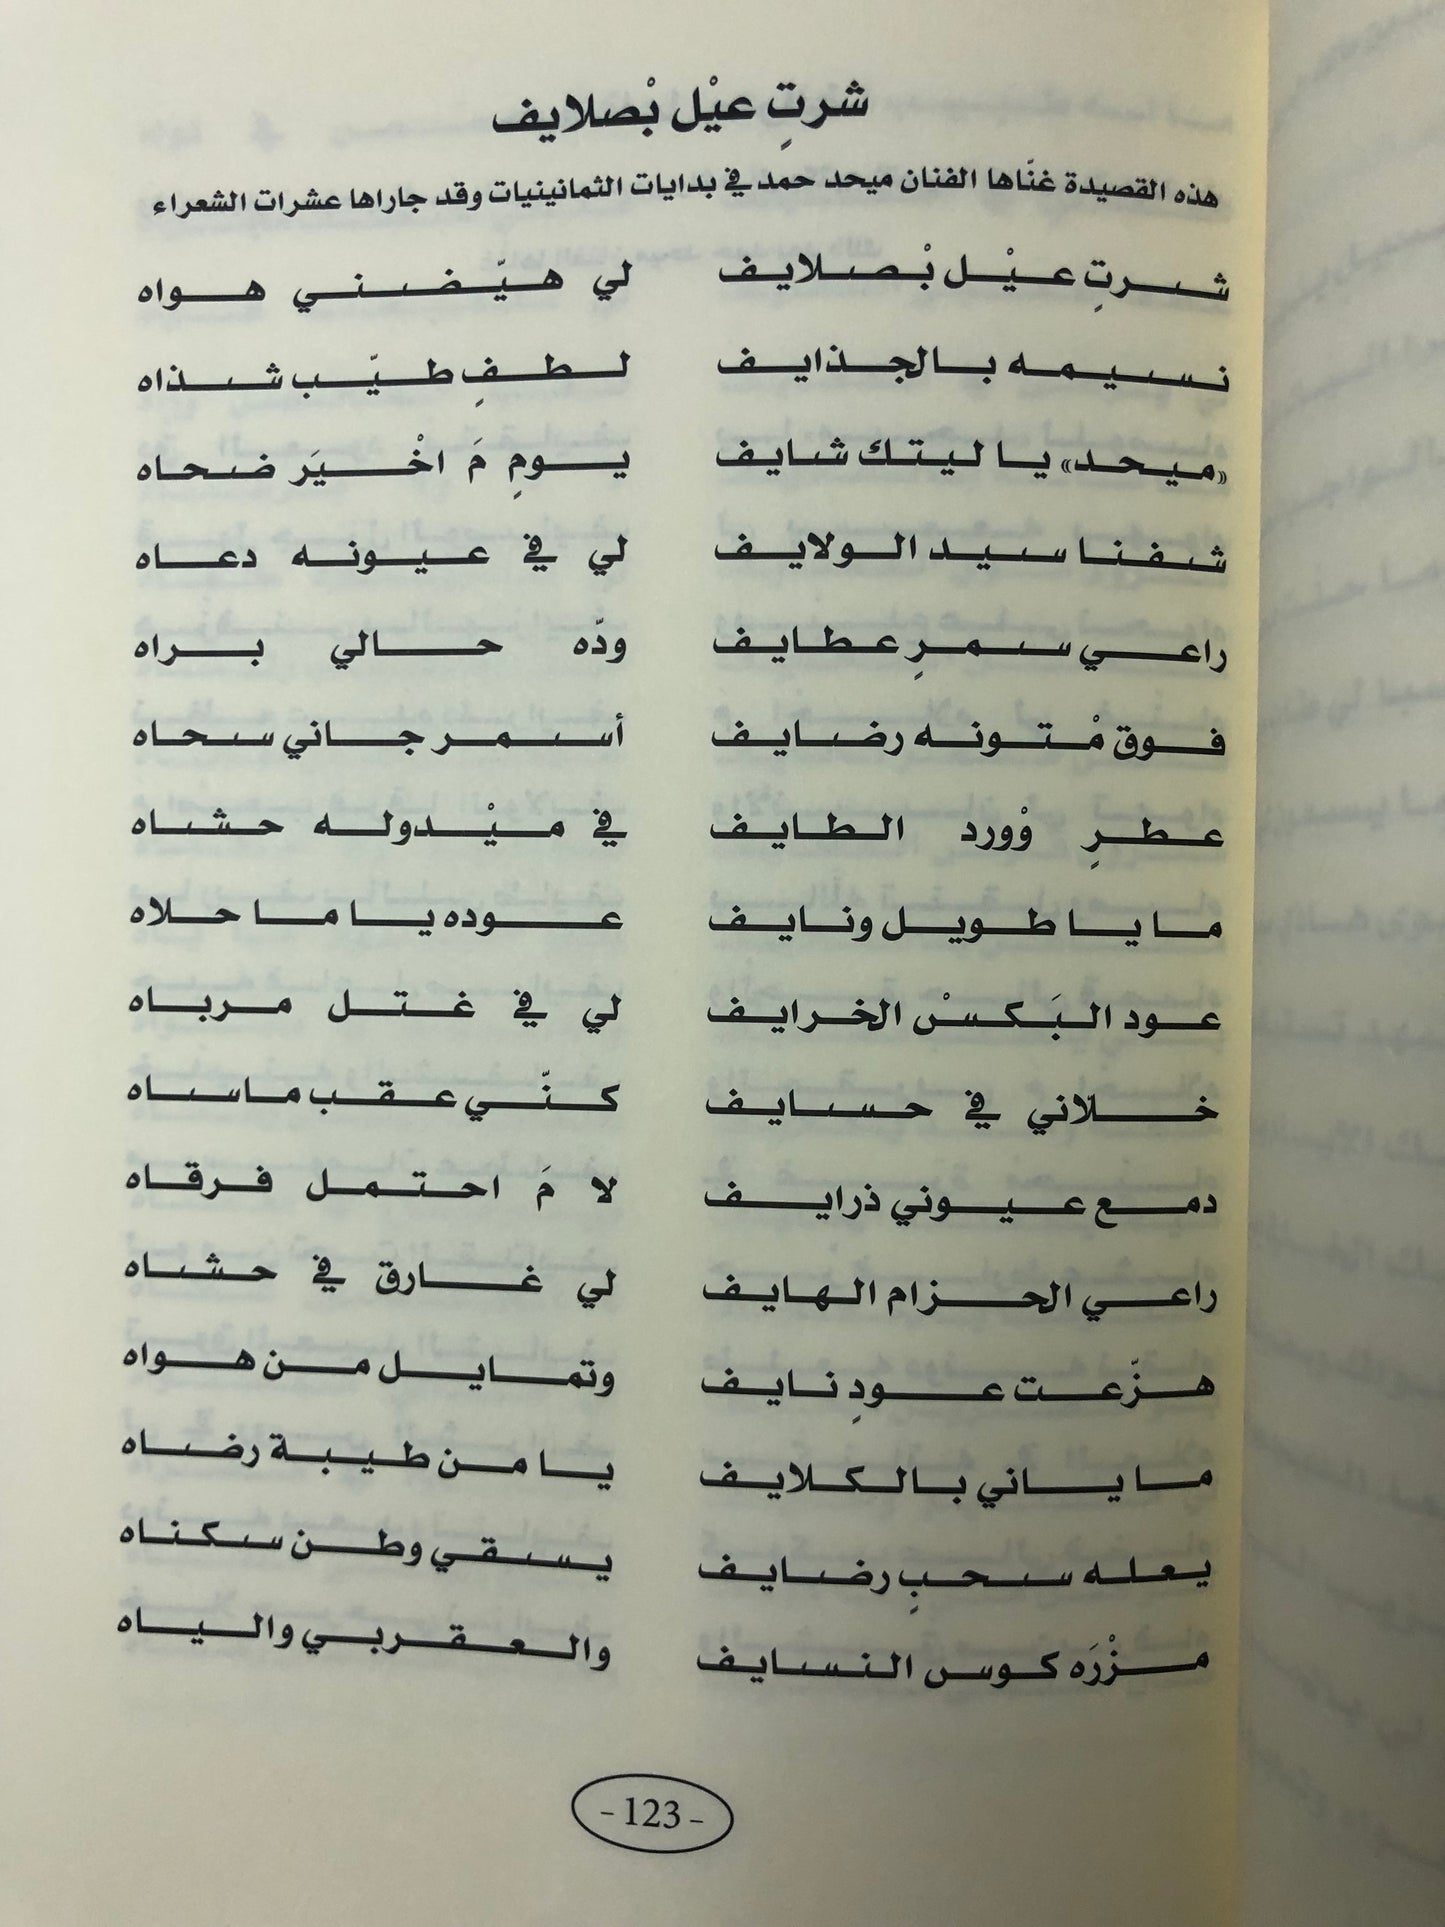 شرتٍ عيْل بْصلايف
هذه القصيدة غنّاها الفنان ميحد حمد في بدايات الثمانينيات وقد جاراها عشرات الشعراء
شرتٍ عيْل بْصلايف لي هيّضني هواه
نسيمه بالجذايف لطفٍ طيّب شذاه
«ميحد» يا ليتك شايف يومٍ مَ اخْيَر ضحاه
شفنا سيد الولايف لي في عيونه دعاه
راعي سمرٍ عطايف ودّه حالي براه
فوق مْتونه رضايف أسمر جاني سحاه
عطرٍ وْورد الطايف في ميْدوله حشاه
ما يا طويل ونايف عوده يا ما حلاه
عود البَكسْ الخرايف لي في غتل مرباه
خلاني في حسايف كنّي عقب ماساه
دمع عيوني ذرايف لا مَ احتمل فرقاه
راعي الحزام الهايف لي غارق في حشاه
هزّعت عودٍ نايف وتمايل من هواه
ما ياني بالكلايف يا من طيبة رضاه
يعله سحبٍ رضايف يسقي وطن سكناه
مزْرَه كوس النسايف والعقربي والياه
- 123 -